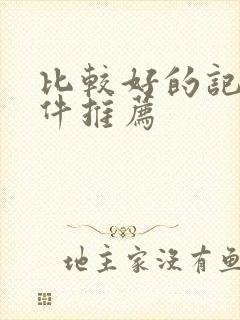 比較好的記
件推薦
地主家沒有魚